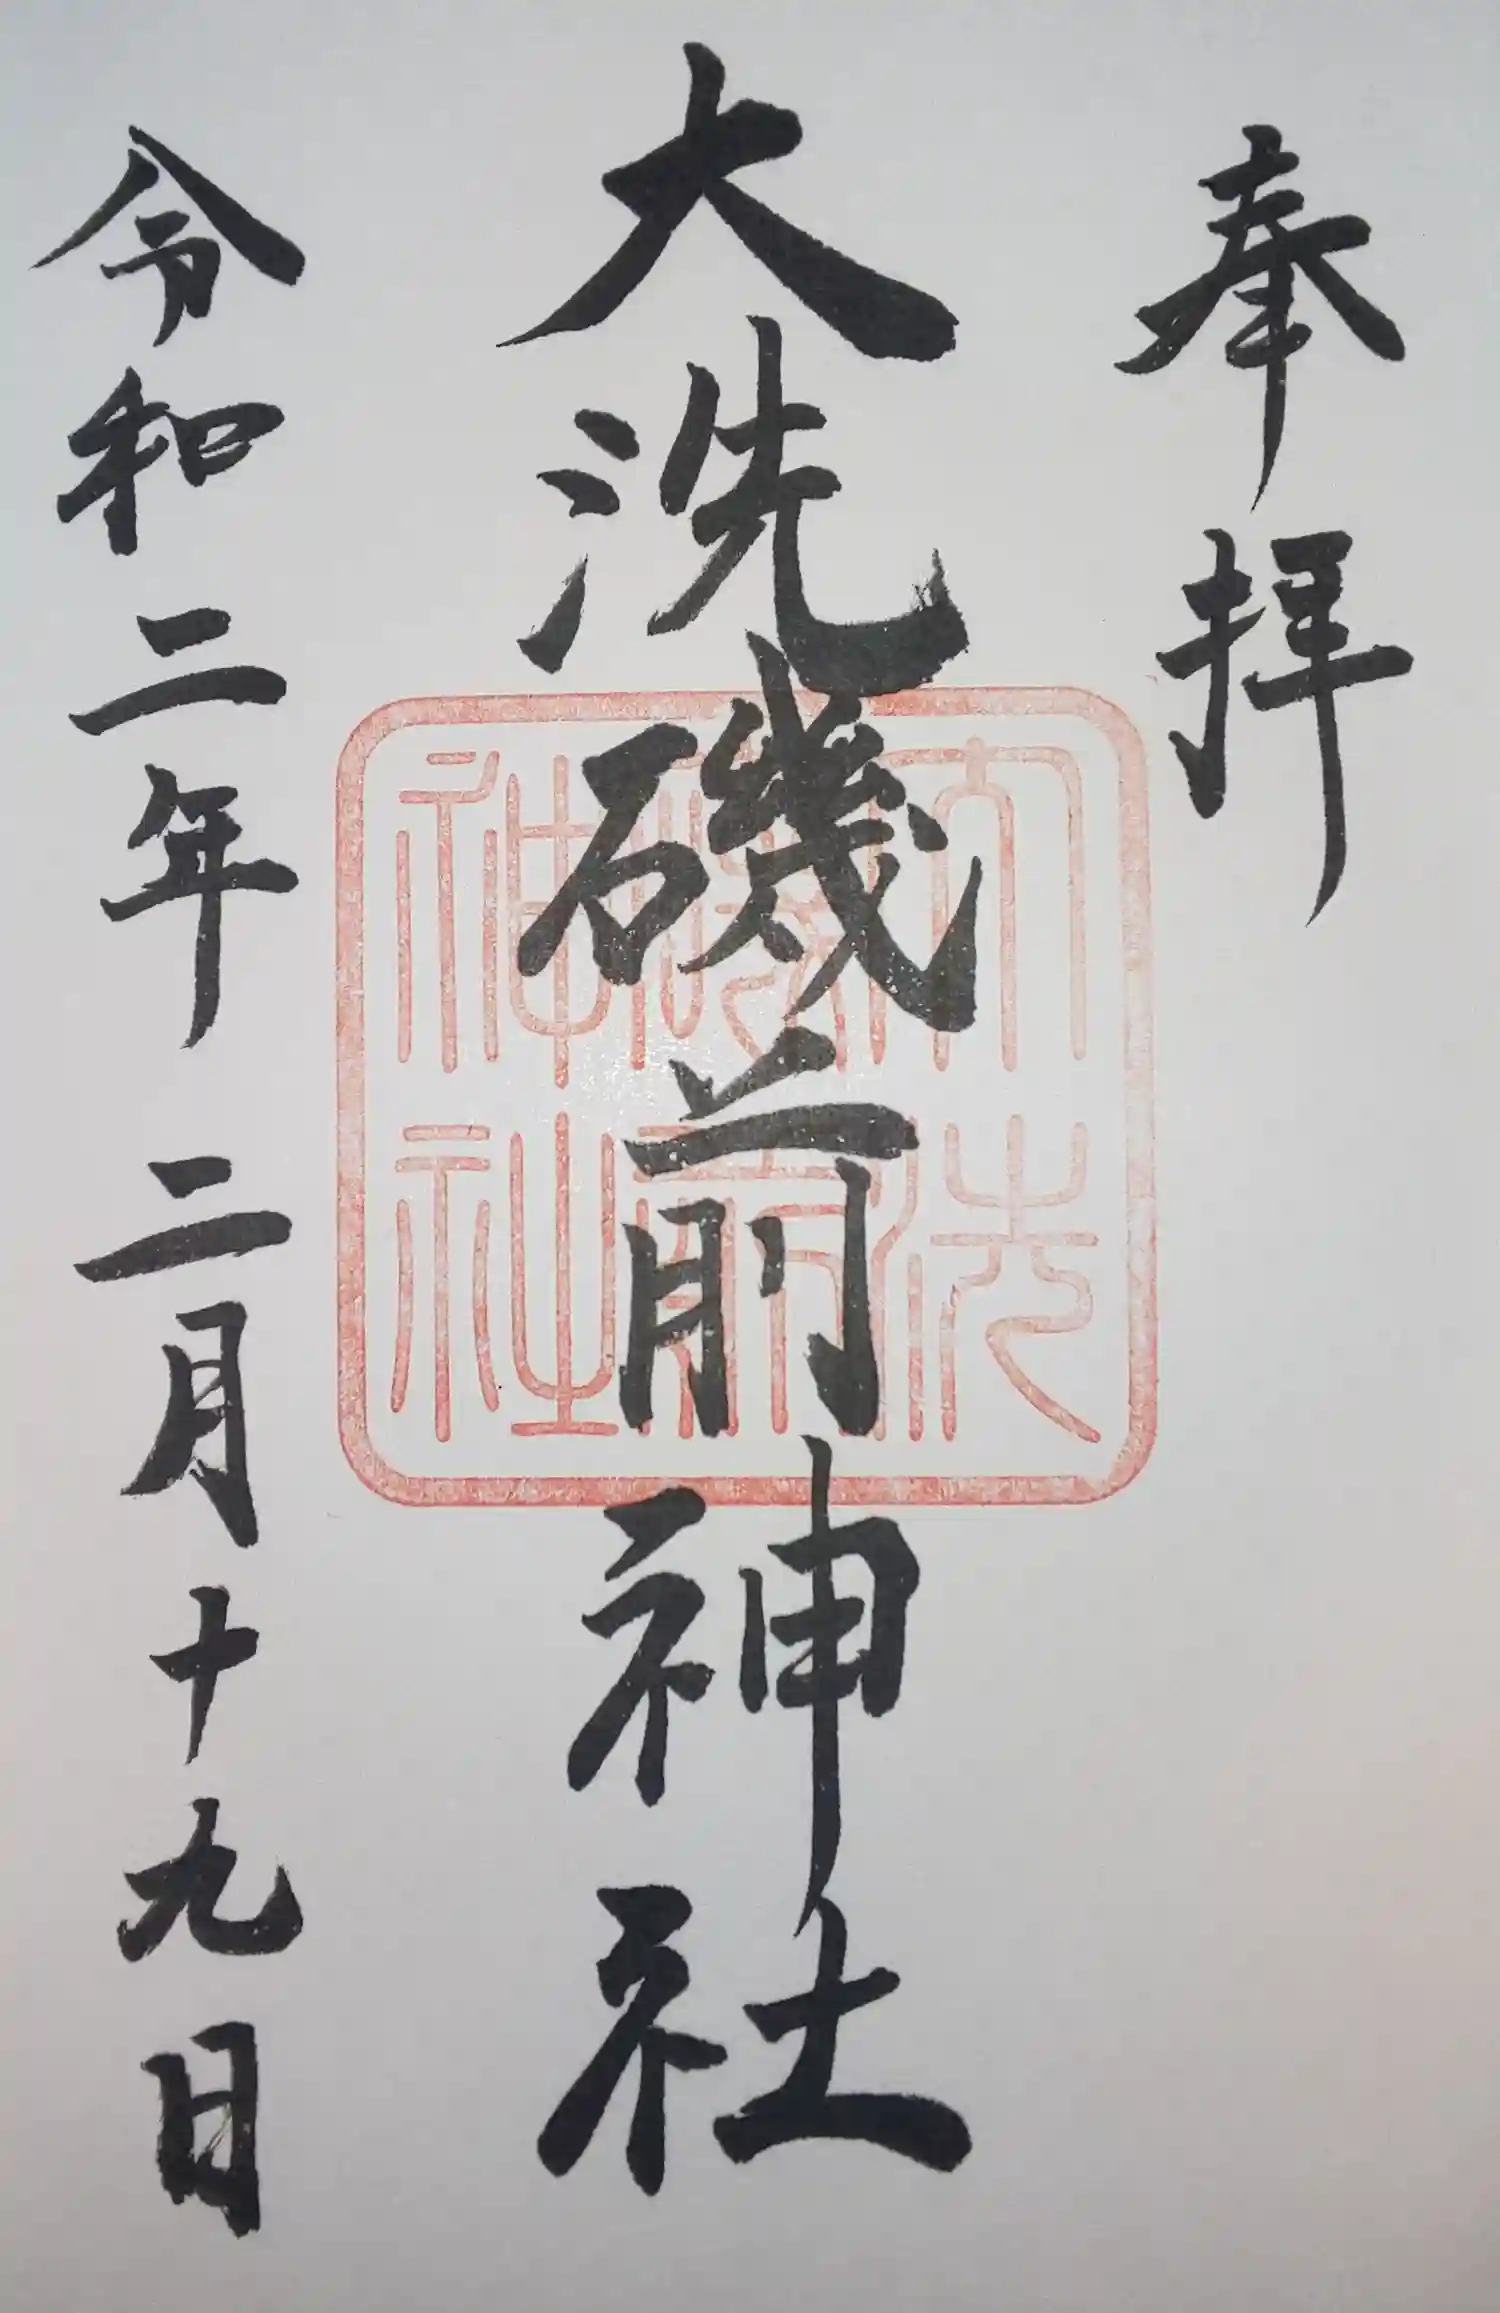 奉拝
大洗磯前神社
大洗
磯前
神社
令和二年二月十九日